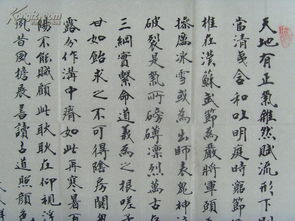 天地有正氣雜然賦流形下
當清夷含和吐明庭時窮節
椎在漢蘇武節為嚴將軍頭
操厲冰雪或為出師表鬼神
破裂是氣所磅礴凜烈萬古
三綱實繫命道義為之根嗟
甘如飴求之不可得陰房闃
露分作溝中瘠如此再寒暑
陽不能賊顧此耿耿在仰視浮
昔風簷展書讀古道照顏色